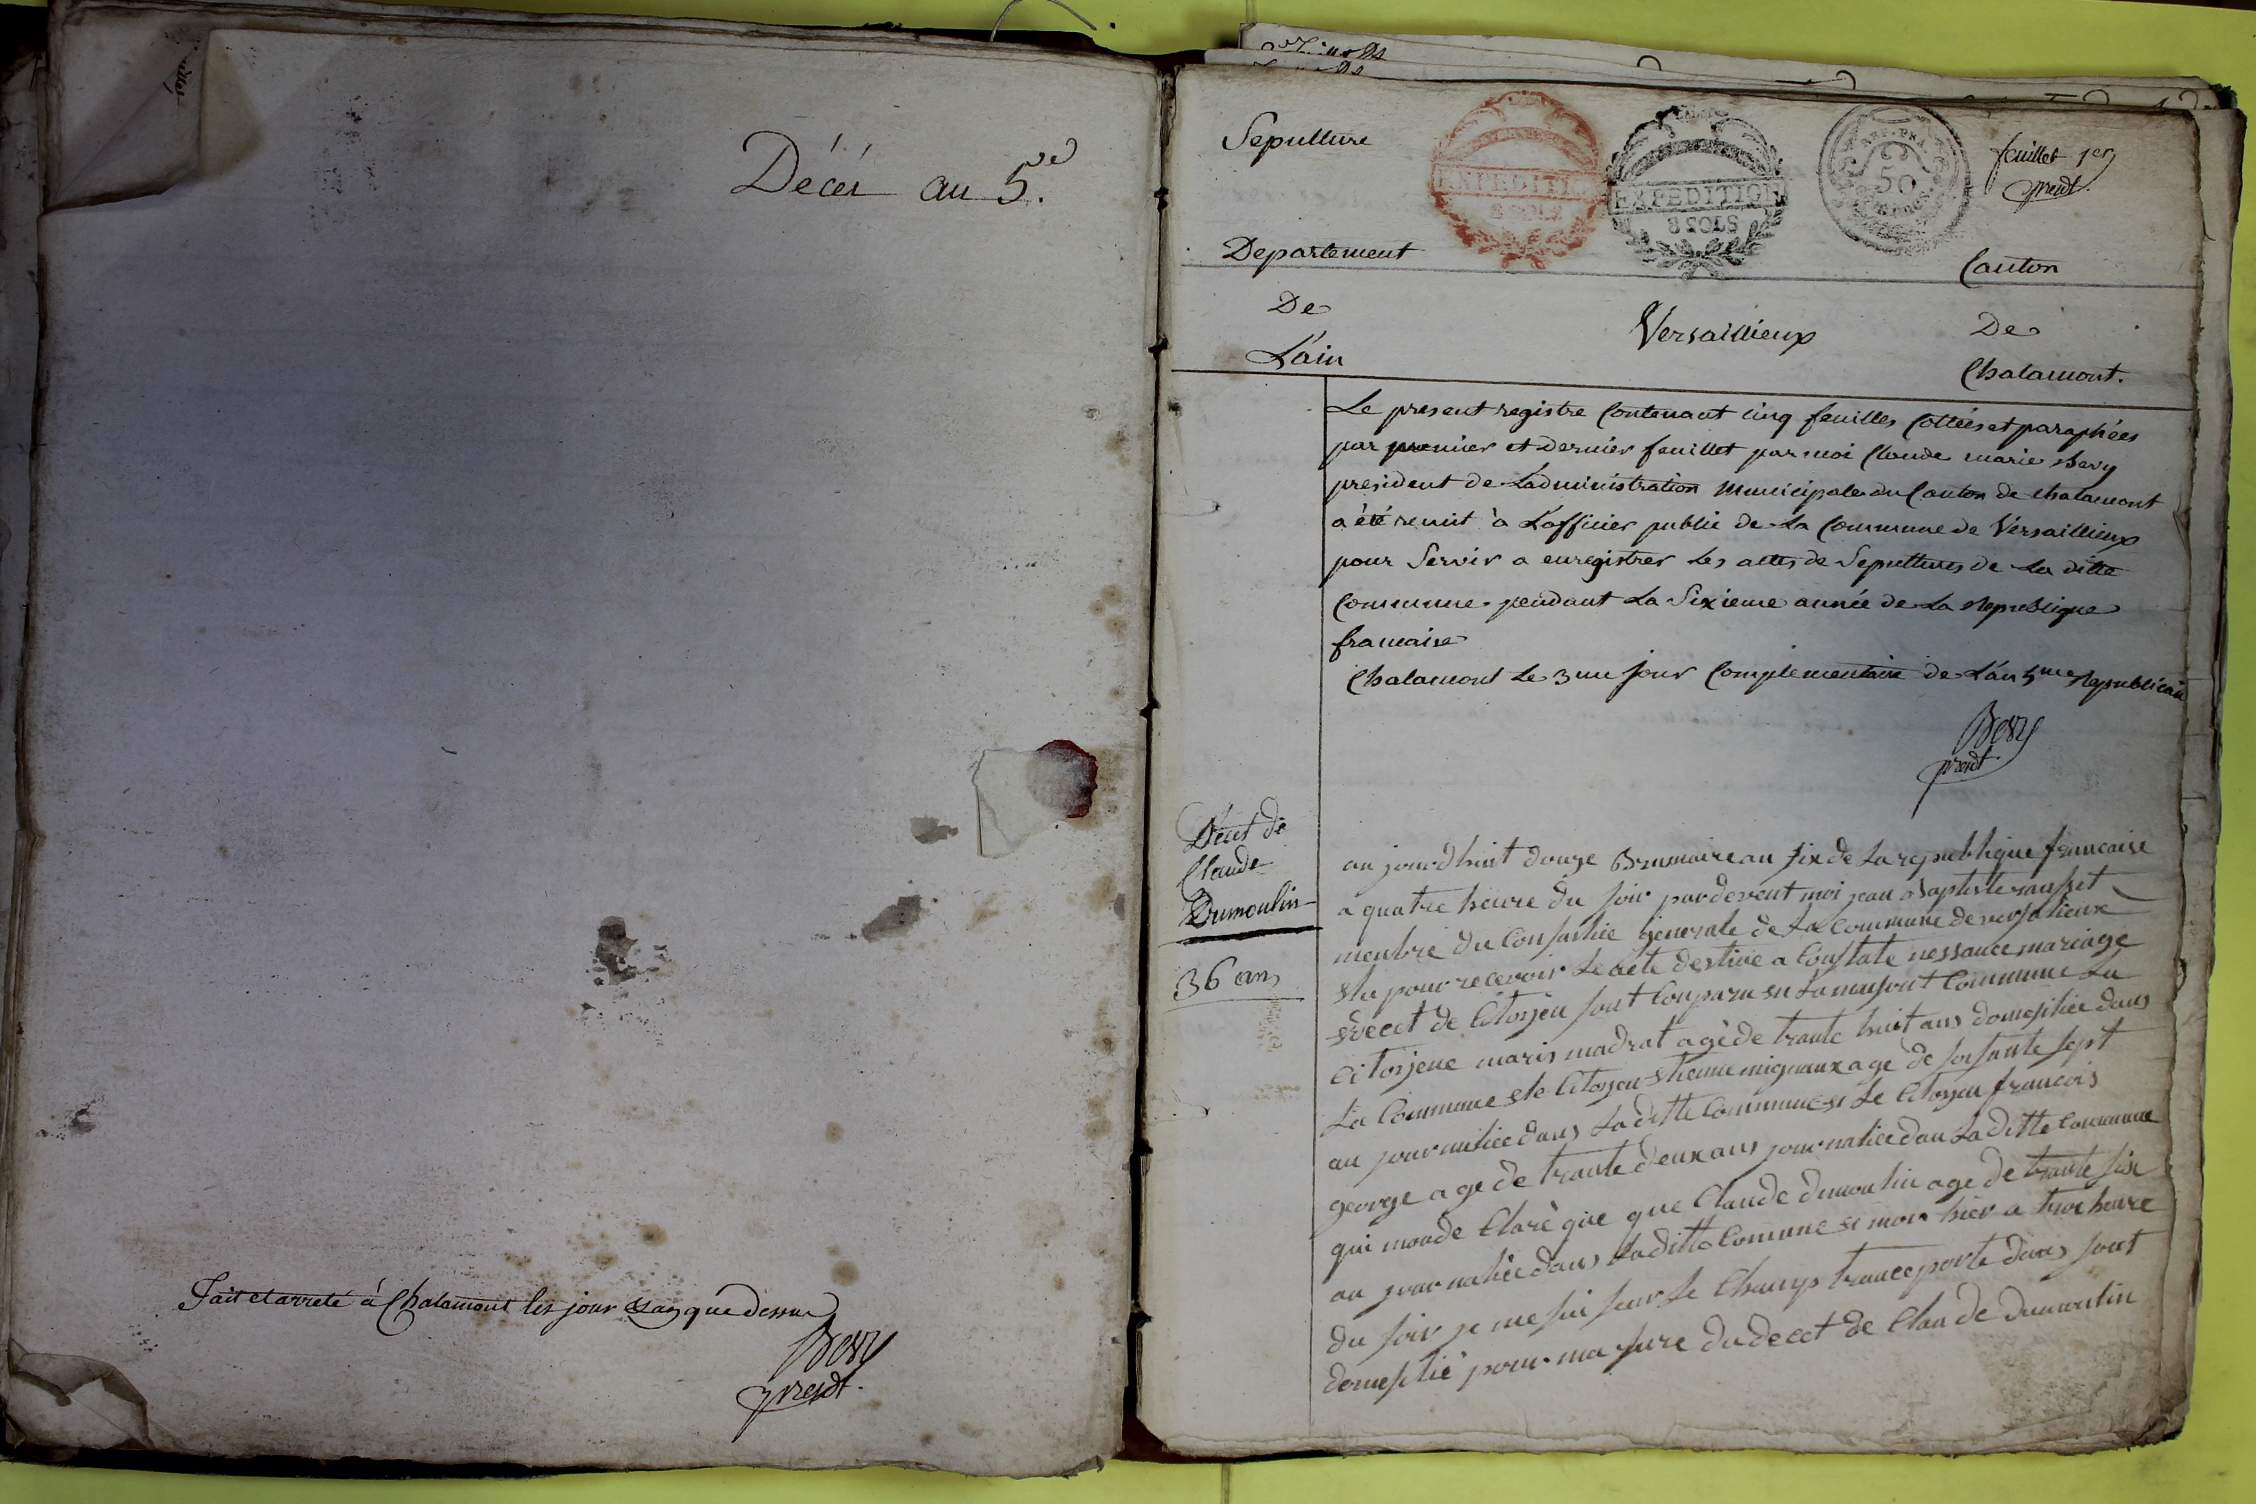 Décés au 5.e
Fait et arreté à Chalamont les jour et an que dessus
Bery
presdt.
Sepulture
EXPEDITION
8 SOLS
EXPEDITION
8 SOLS
50
feuillet 1er
presdt.
Departement
Canton
De
Versaillieux
De
L'ain
Chalamont.
Le present registre Contenant cinq feuilles Cottées et paraphées
par premier et dernier feuillet par moi Claude marie Bery
president de L'administration Municipale du Canton de chalamont
a été remit à L'officier public de La Commune de Versaillieux
pour Servir a enregistrer Les actes de Sepultures de La ditte
Commune pendant La Sixieme année de La Republique
francaise
Chalamont Le 3me jour Complementaire de L'an 5me Republicain
Bery
presdt.
Décet de
Claude
Dumoulin
36 ans
au jourdhuit douze Brumaire an six de La republique francaise
a quatre heure du soir pardevent moi jean Baptiste
membre du Generale de La Commune de versalieux
elu pour recevoir Le acte destiné a Constate nessance mariage
decet de Citoyen sont Conparu en La maisont Commune La
Citoyene maris madrat agè de trante huit ans domesitiée dans
La Commune et le Citoyen etienne mignaux age de soisante sept
an journaliée dans La ditte Commune et Le Citoyen francois
george age de trante deux ans journaliée dan La ditte Commune
qui mon de Claré que que Claude dumoulin age de trante six
an journaliée dans La ditte Comune et mor hier a troi heure
du soir je me sui sur Le Champ trance porte dans sont
domesilié pour ma sure du decet de Claude dumoulin